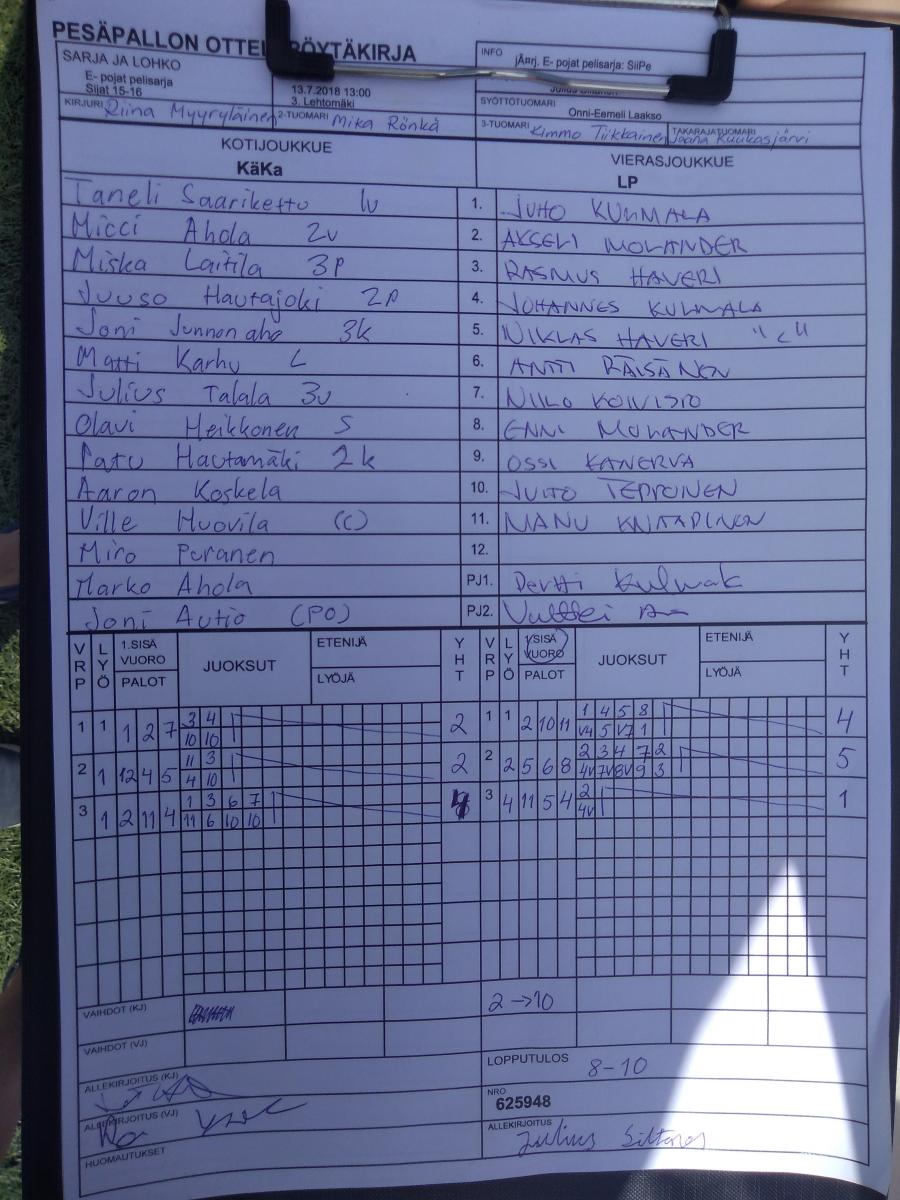 PESÄPALLON OTTEL RÖYTÄKIRJA
SARJA JA LOHKO
E- pojat pelisarja
Sijat 15-16
13.7.2018 13:00
3. Lehtomäki
INFO jÃ¤rj. E- pojat pelisarja: SiiPe
SYÖTTÖTUOMARI
Onni-Eemeli Laakso
KIRJURI Riina Myyryläinen 2-TUOMARI Mika Rönkä 3-TUOMARI Kimmo Tiikkainen TAKARAJATUOMARI Joona Kuukasjärvi
KOTIJOUKKUE VIERASJOUKKUE
KäKa LP
Taneli Saariketto lv 1. JUHO KULMALA
Micci Ahola 2v 2. AKSELI MOLANDER
Miska Laitila 3p 3. RASMUS HAVERI
Juuso Hautajoki 2p 4. JOHANNES KULMALA
Joni Junnonaho 3k 5. NIKLAS HAVERI "c"
Matti Karhu L 6. ANTTI RÄISÄNEN
Julius Talala 3v 7. NIILO KOIVISTO
Olavi Heikkonen S 8. ENNI MOLANDER
Patu Hautamäki 2k 9. OSSI KANERVA
Aaron Koskela 10. JUHO TEPPONEN
Ville Huovila (C) 11. MANU
Miro Poranen 12.
Marko Ahola PJ1. Pertti
Joni Autio (PO) PJ2.
VRP LYÖ 1.SISÄ VUORO PALOT JUOKSUT ETENIJÄ LYÖJÄ YHT VRP LYÖ 1.SISÄ VUORO PALOT JUOKSUT ETENIJÄ LYÖJÄ YHT
1 1 1 2 7 3 4 2 1 1 2 10 11 1 4 5 8 4
10 10 V4 5 V7 1
2 1 12 4 5 11 3 2 2 2 5 6 8 2 3 4 7 2 5
4 10 4V 7V 8V 9 3
3 1 2 11 4 1 3 6 7 4 3 4 11 5 4 2 1
11 6 10 10 4V
VAIHDOT (KJ) 2→10
VAIHDOT (VJ)
LOPPUTULOS 8-10
ALLEKIRJOITUS (KJ)
NRO
625948
ALLEKIRJOITUS (VJ)
ALLEKIRJOITUS Julius Siltanen
HUOMAUTUKSET